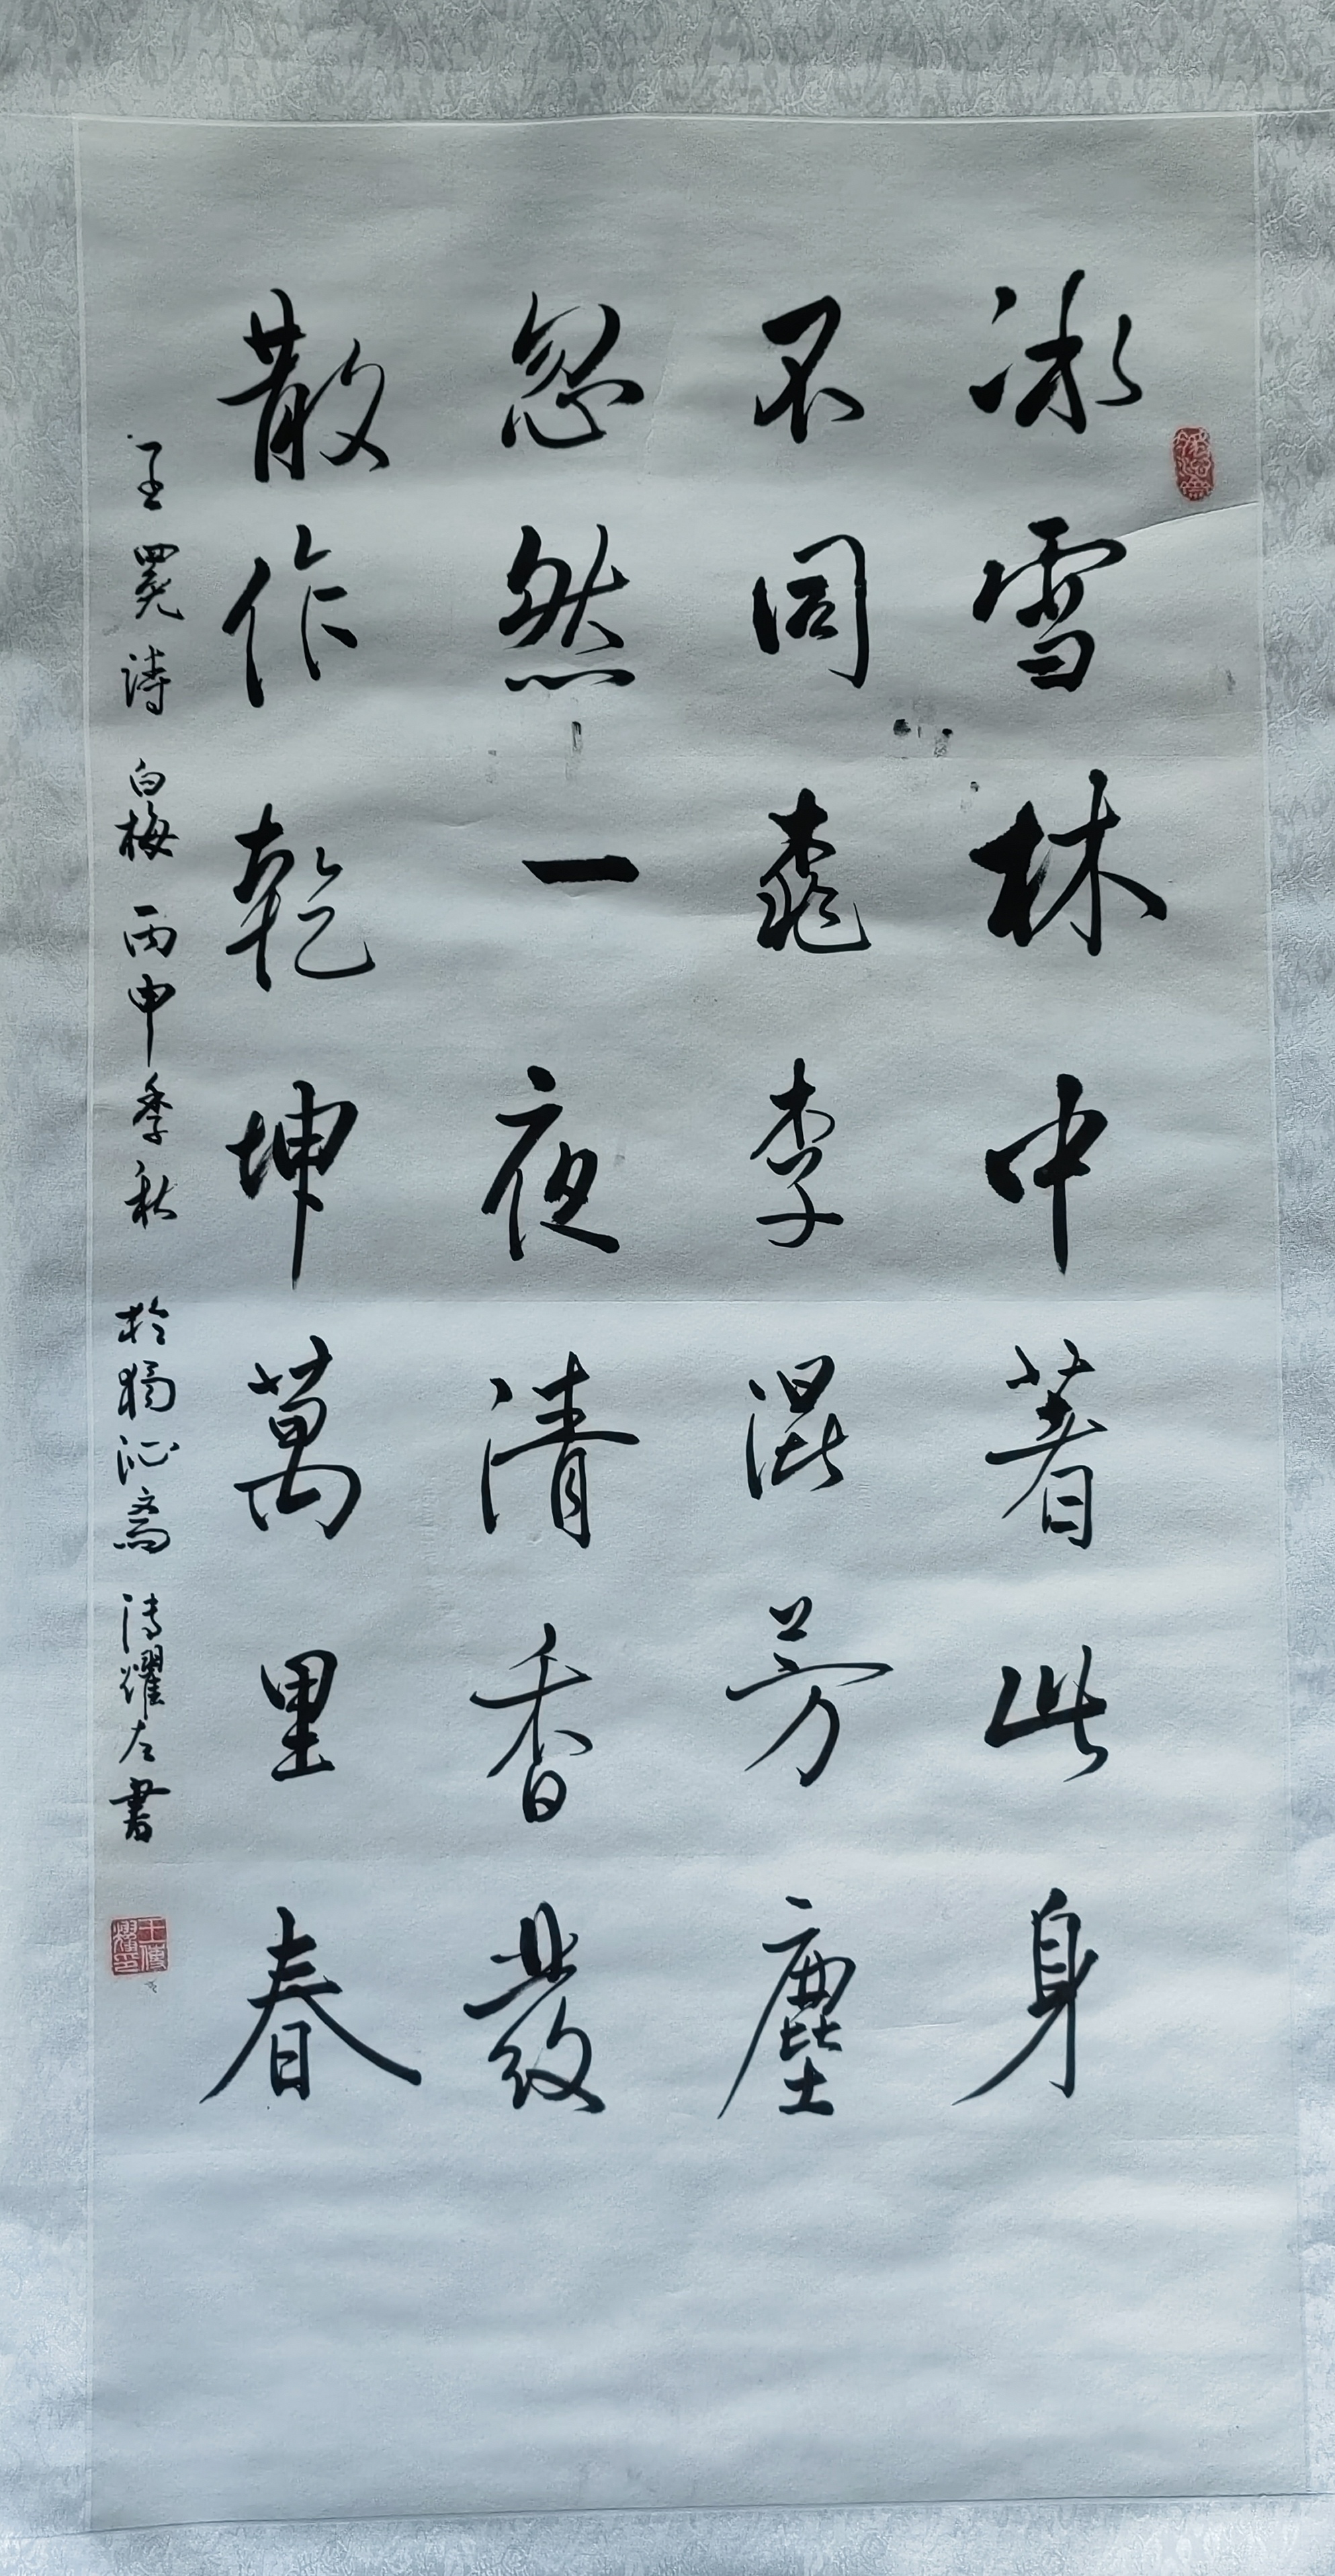 冰雪林中著此身
不同桃李混芳塵
忽然一夜清香發
散作乾坤萬里春
王冕詩白梅丙申季秋於獨沁齋傳耀左書
王傳耀印